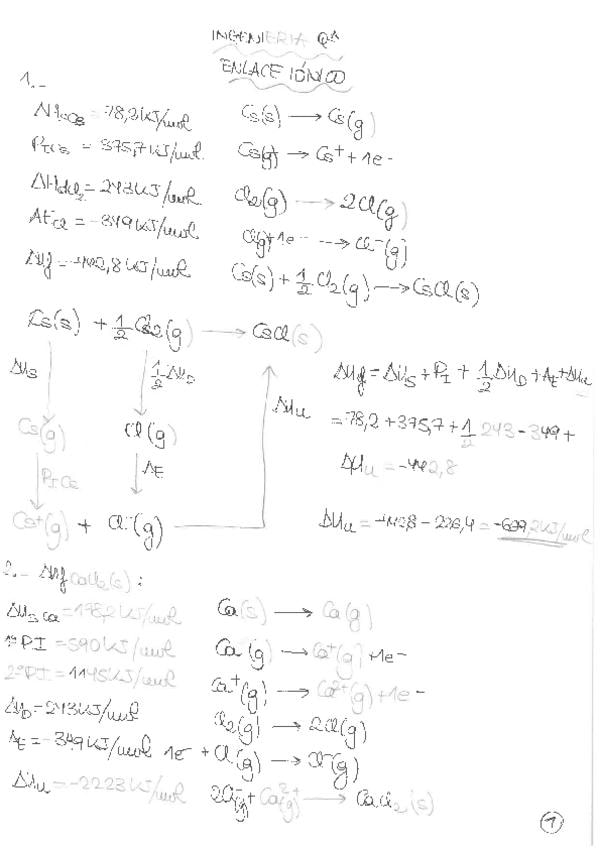 INGENIERIA Qª
ENLACE IÓNICO
1.-
ΔHs Cs = 78,2 kJ/mol Cs(s) → Cs(g)
PI Cs = 375,7 kJ/mol Cs(g) → Cs⁺ + 1e⁻
ΔHd Cl₂ = 243 kJ/mol Cl₂(g) → 2Cl(g)
AE Cl = -349 kJ/mol Cl(g) + 1e⁻ → Cl⁻(g)
ΔHf = -442,8 kJ/mol Cs(s) + 1/2 Cl₂(g) → CsCl(s)
Cs(s) + 1/2 Cl₂(g) → CsCl(s)
ΔHS 1/2 ΔHD ΔHf = ΔHS + PI + 1/2 ΔHD + AE + ΔHu
Cs(g) Cl(g) ΔHu = 78,2 + 375,7 + 1/2 243 - 349 +
PI Cs AE ΔHu = -442,8
Cs⁺(g) + Cl⁻(g) ΔHu = -442,8 - 226,4 = -669,2 kJ/mol
2.- ΔHf CaCl₂(s):
ΔHS Ca = 178,2 kJ/mol Ca(s) → Ca(g)
1ª PI = 590 kJ/mol Ca(g) → Ca⁺(g) + 1e⁻
2ª PI = 1145 kJ/mol Ca⁺(g) → Ca²⁺(g) + 1e⁻
ΔHD = 243 kJ/mol Cl₂(g) → 2Cl(g)
AE = -349 kJ/mol 1e⁻ + Cl(g) → Cl⁻(g)
ΔHu = -2223 kJ/mol 2Cl⁻(g) + Ca²⁺(g) → CaCl₂(s)
1